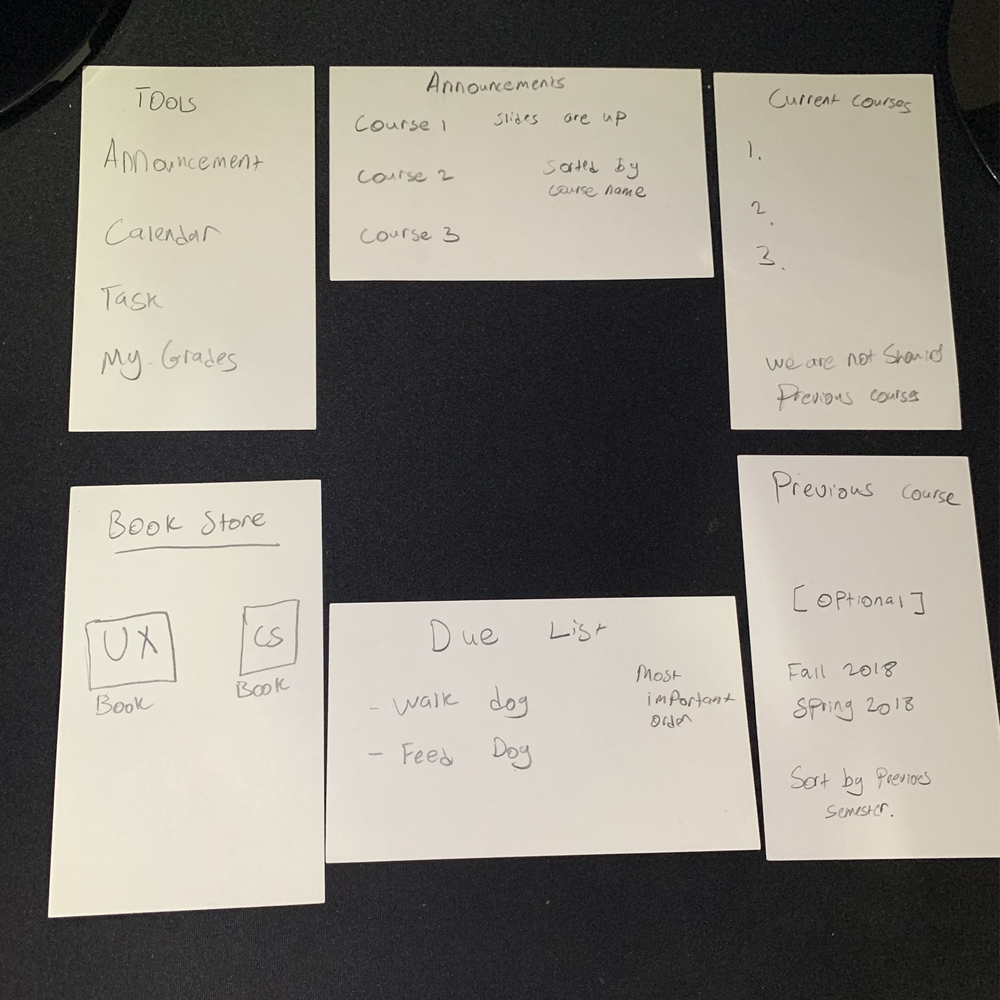 TOOLS
Announcement
Calendar
Task
My Grades
Announcements
Course 1 slides are up
Course 2 sorted by
course name
Course 3
Current courses
1.
2.
3.
we are not
Previous course
Book Store
UX
Book
CS
Book
Due List
- walk dog
- Feed Dog
Most
important
order
Previous course
[optional]
Fall 2018
Spring 2018
Sort by Previous
semester.